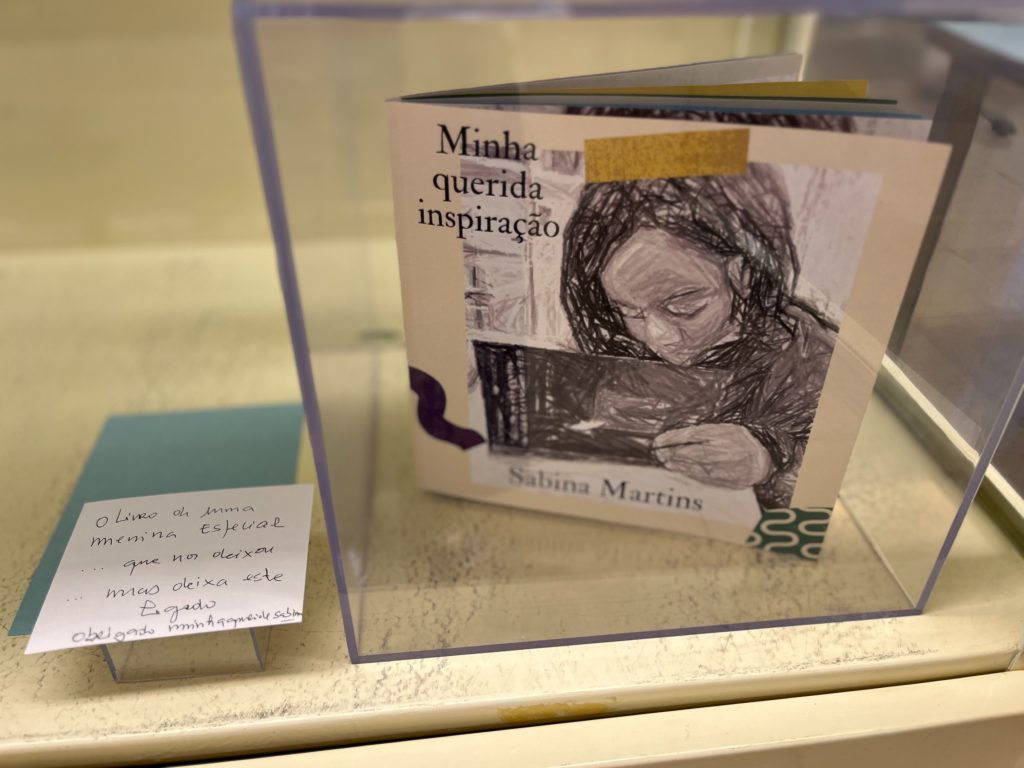 Minha
querida
inspiração
Sabina Martins
O Livro de uma
menina Especial
... que nos deixou
... mas deixa este
Legado
Obrigado minha querida Sabina